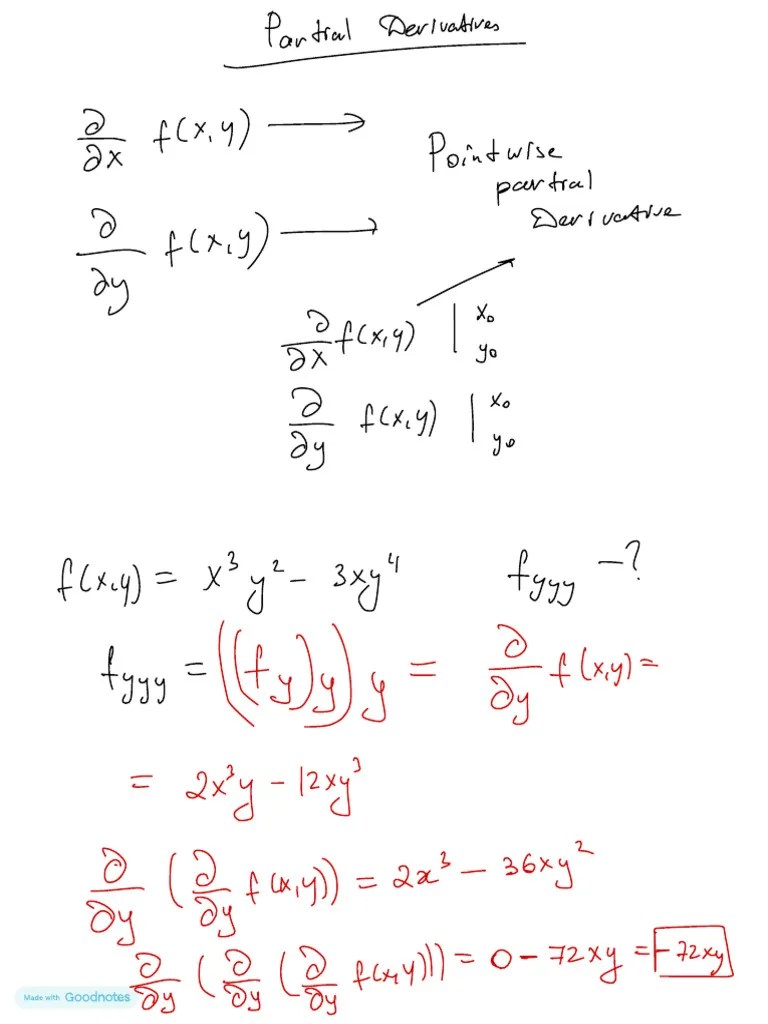 Partial Derivatives
∂/∂x f(x,y) ⟶
Pointwise
partial
Derivative
∂/∂y f(x,y) ⟶
∂/∂x f(x,y) | x₀ y₀
∂/∂y f(x,y) | x₀ y₀
f(x,y) = x³y² - 3xy⁴ fyyy -?
fyyy = ((fy)y)y = ∂/∂y f(x,y) =
= 2x³y - 12xy³
∂/∂y (∂/∂y f(x,y)) = 2x³ - 36xy²
∂/∂y (∂/∂y (∂/∂y f(x,y))) = 0 - 72xy = -72xy
Made with Goodnotes